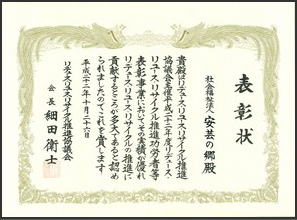 表彰状
社会福祉法人 安芸の郷殿
貴殿はリデュース・リユース・リサイクル推進
協議会主催平成二十二年度リデュース・
リユース・リサイクル推進功労者等
表彰事業においてその実績が優れ
リデュース・リユース・リサイクルの推進に
貢献するところが多大であると認め
られましたのでこれを賞します
平成二十二年十月二十六日
リデュース・リユース・リサイクル推進協議会
会長 細田衛士